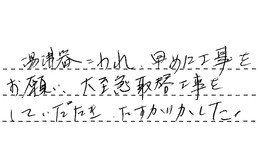 湯沸器こわれ、早めに工事を
お願い、大至急取替工事を
していただき、たすかりました。